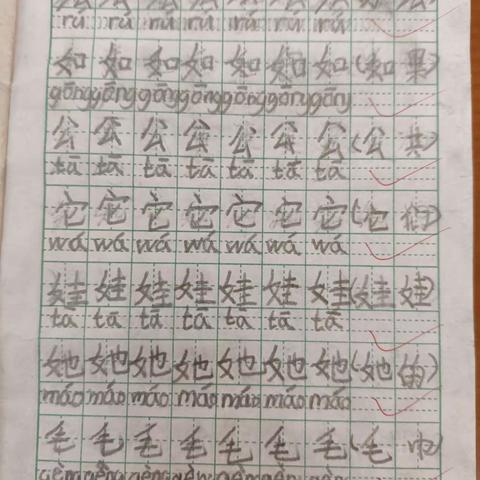 rú rú rú rú rú rú rú
如 如 如 如 如 如 如(如 果)
gōng gōng gōng gōng gōng gōng gōng
公 公 公 公 公 公 公(公 共)
tā tā tā tā tā tā tā
它 它 它 它 它 它 它(它 们)
wá wá wá wá wá wá wá
娃 娃 娃 娃 娃 娃 娃(娃 娃)
tā tā tā tā tā tā tā
她 她 她 她 她 她 她(她 的)
máo máo máo máo máo máo máo
毛 毛 毛 毛 毛 毛 毛(毛 巾)